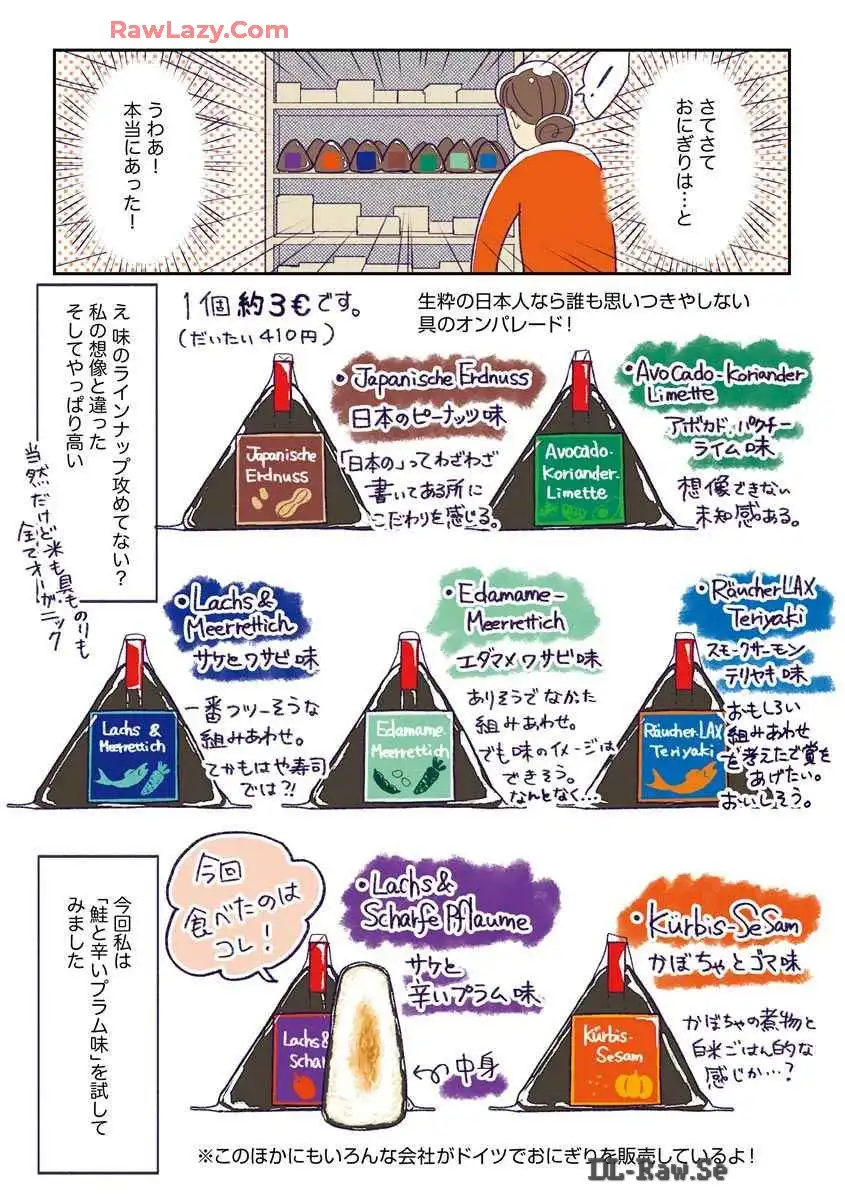 RawLazy.Com
さてさて
おにぎりは…と
!
うわあ!
本当にあった!
え 味のラインナップ攻めてない?
私の想像と違った
そしてやっぱり高い
当然だけど米も具ものりも
全てオーガニック
1個約3€です。
(だいたい410円)
生粋の日本人なら誰も思いつきやしない
具のオンパレード!
・Japanische Erdnuss
日本のピーナッツ味
「日本の」ってわざわざ
書いてある所に
こだわりを感じる。
Japanische
Erdnuss
・Avocado-Koriander
Limette
アボカド・パクチー
ライム味
想像できない
未知感ある。
Avocado-
Koriander-
Limette
・Lachs &
Meerrettich
サケとワサビ味
一番フツーそうな
組みあわせ。
てかもはや寿司
では?!
Lachs &
Meerrettich
・Edamame-
Meerrettich
エダマメワサビ味
ありそうでなかた
組みあわせ。
でも味のイメージは
できそう。
なんとなく…
Edamame-
Meerrettich
・RäucherLAX
Teriyaki
スモークサーモン
テリヤキ味
おもしろい
組みあわせ
を考えたで賞を
あげたい。
おいしそう。
Räucher.LAX
Teriyaki
今回私は
「鮭と辛いプラム味」を試して
みました
今回
食べたのは
コレ!
・Lachs &
Scharfe Pflaume
サケと
辛いプラム味
Lachs &
Schar
中身
・Kürbis-SeSam
かぼちゃとゴマ味
かぼちゃの煮物と
白米ごはん的な
感じか…?
Kürbis-
Sesam
※このほかにもいろんな会社がドイツでおにぎりを販売しているよ!
DL-Raw.Se